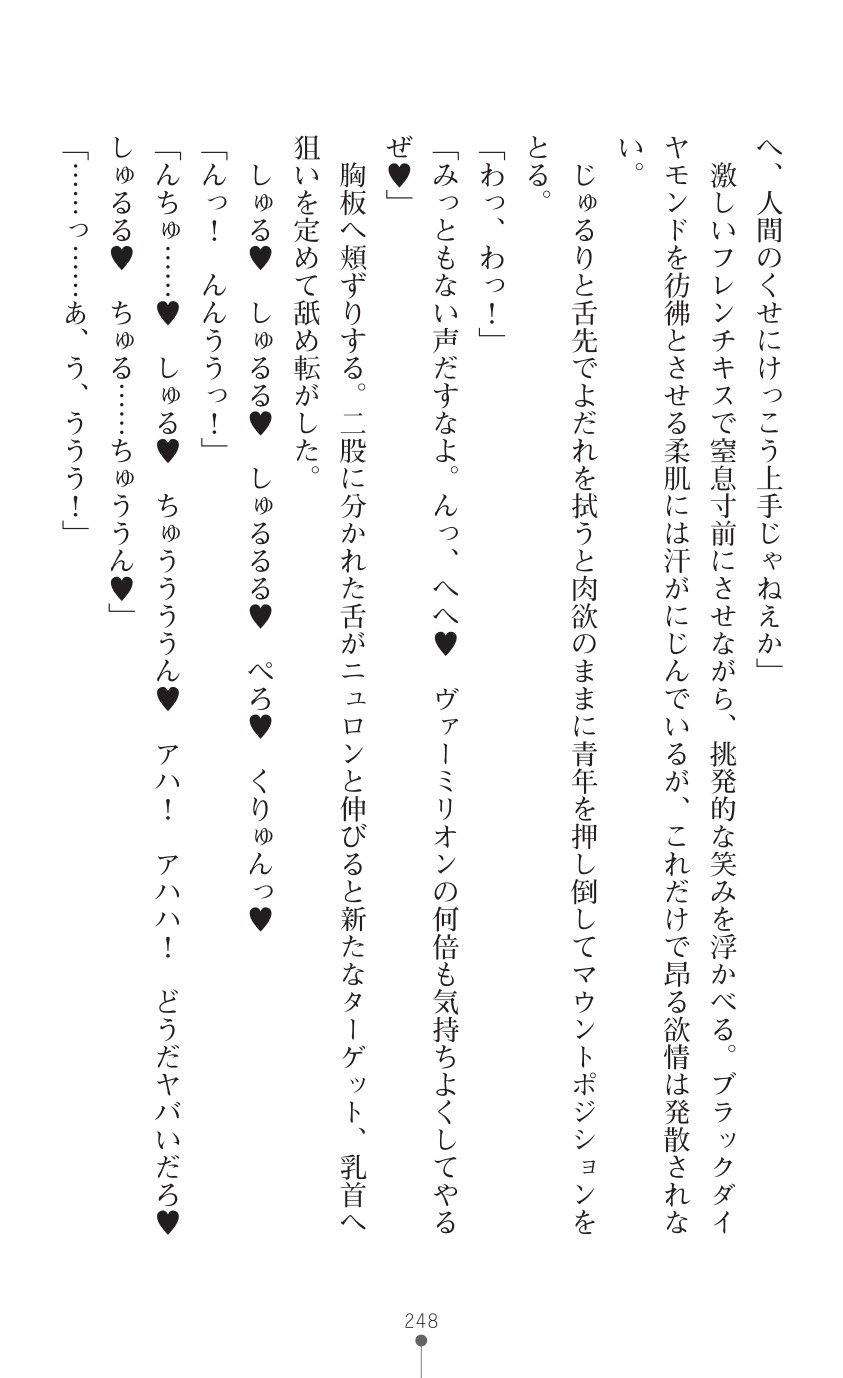 へ、人間のくせにけっこう上手じゃねえか」
　激しいフレンチキスで窒息寸前にさせながら、挑発的な笑みを浮かべる。ブラックダイ
ヤモンドを彷彿とさせる柔肌には汗がにじんでいるが、これだけで昂る欲情は発散されな
い。
　じゅるりと舌先でよだれを拭うと肉欲のままに青年を押し倒してマウントポジションを
とる。
「わっ、わっ！」
「みっともない声だすなよ。んっ、へへ♥　ヴァーミリオンの何倍も気持ちよくしてやる
ぜ♥」
　胸板へ頬ずりする。二股に分かれた舌がニュロンと伸びると新たなターゲット、乳首へ
狙いを定めて舐め転がした。
　しゅる♥　しゅるる♥　しゅるるる♥　ぺろ♥　くりゅんっ♥
「んっ！　んんううっ！」
「んちゅ……♥　しゅる♥　ちゅうううん♥　アハ！　アハハ！　どうだヤバいだろ♥
しゅるる♥　ちゅる……ちゅううん♥」
「……っ……あ、う、ううう！」
248